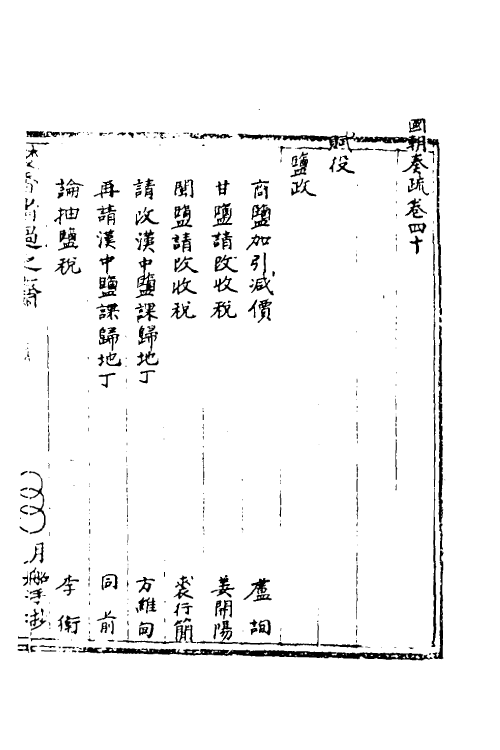 國朝奏疏卷四十
賦役
鹽政
商鹽加引減價 盧詢
甘鹽請改收稅 姜開陽
閩鹽請改收稅 裘行簡
請改漢中鹽課歸地丁 方維甸
再請漢中鹽課歸地丁 同前
論抽鹽稅 李衛